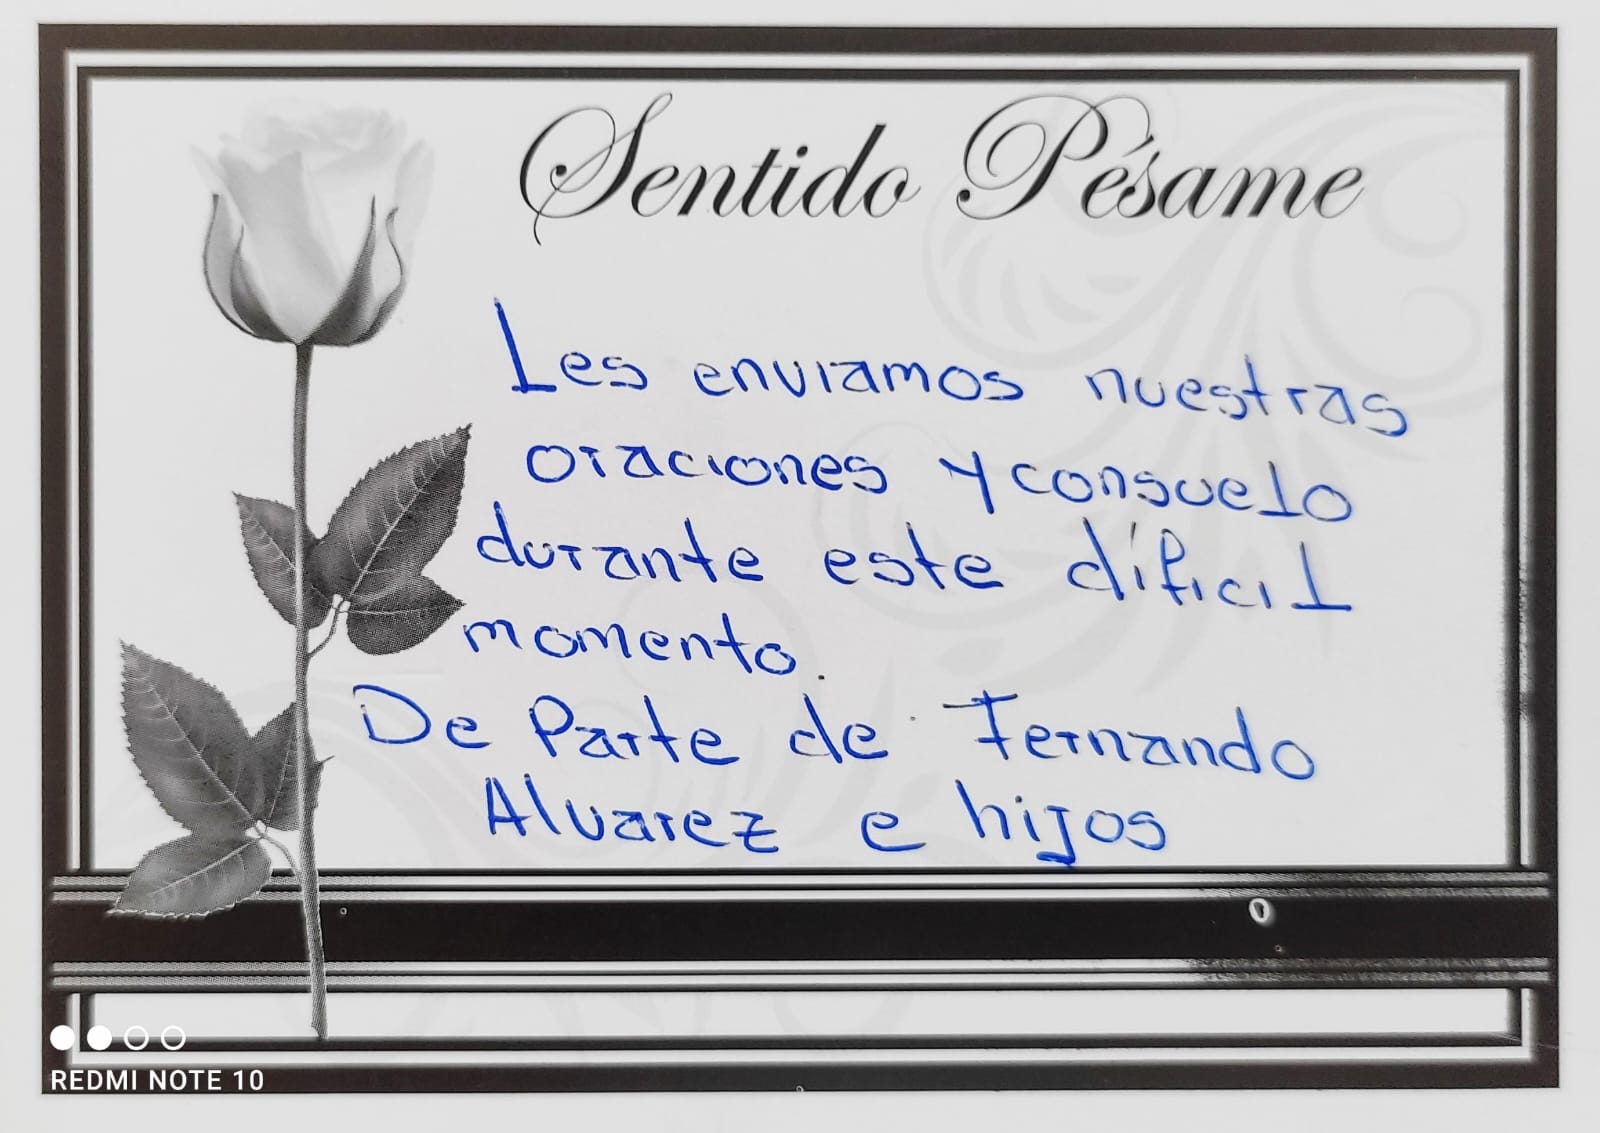 Sentido Pésame
Les enviamos nuestras
oraciones y consuelo
durante este díficil
momento.
De Parte de Fernando
Alvarez e hijos
REDMI NOTE 10